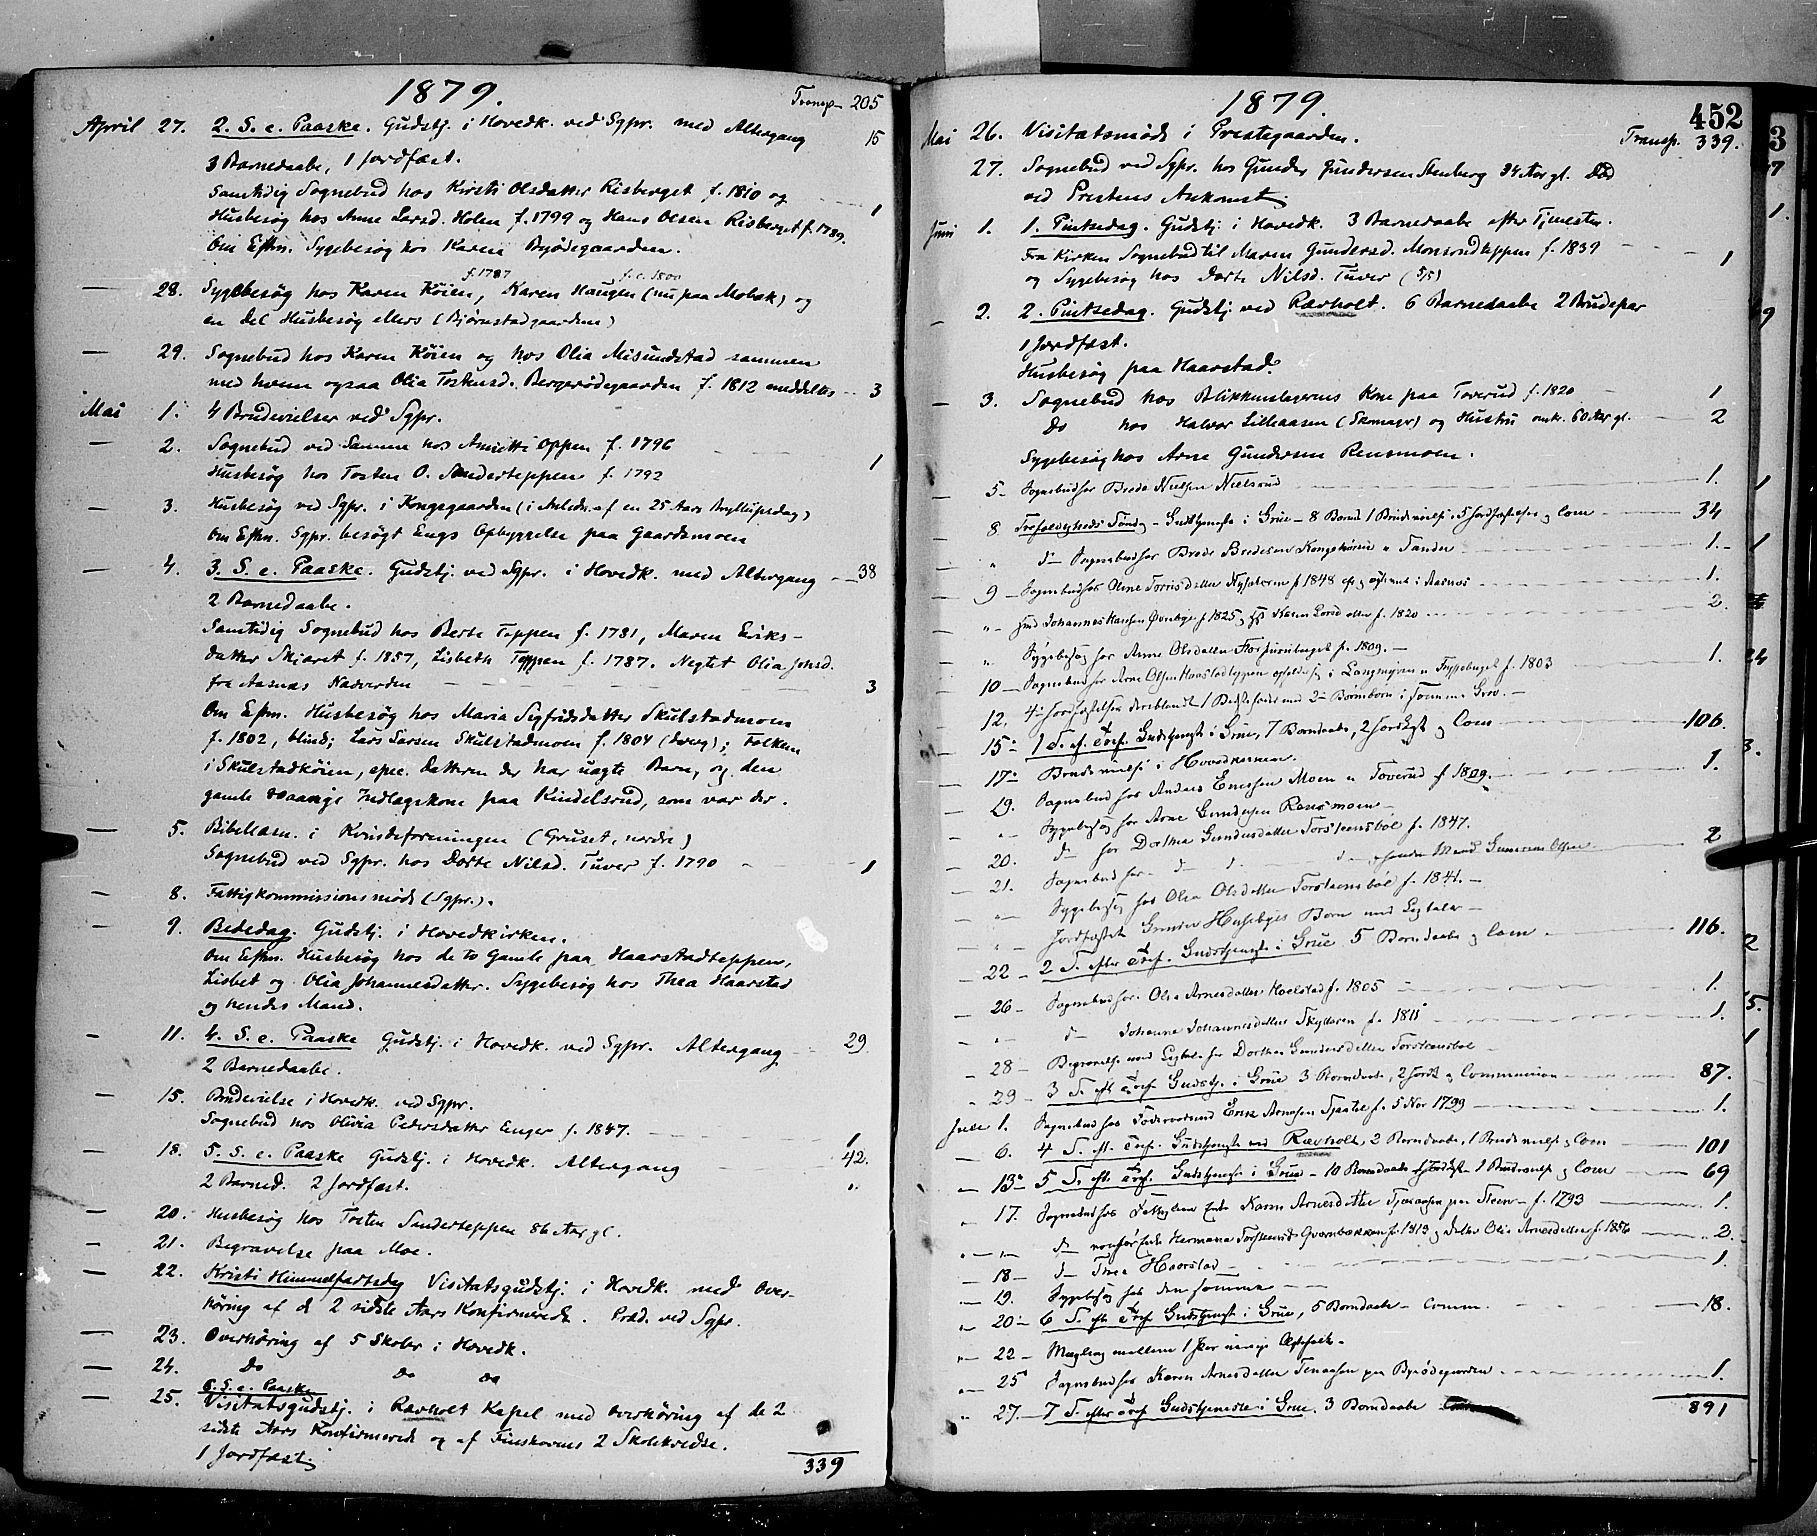 1879.
Transp. 205
April 27. 2. S. e. Paaske. Gudstj. i Hovedk. ved Sgpr. med Altergang 15
3 Barnedaabe, 1 Jordfæst.
Samtidig Sognebud hos Kirsti Olsdatter Risberget f. 1810 og 1
Husbesøg hos Anne Larsd. Holen f. 1799 og Hans Olsen Risberget f. 1789.
Om Eftm. Sygebesøg hos Karen Byødegaarden.
f. 1787 f. c. 1800
— 28. Sygebesøg hos Karen Køien, Karen Haugen (nu paa Mobæk) og
en Del Husbesøg ellers (Bjørnstadgaarden)
— 29. Sognebud hos Karen Køien og hos Olia Misundstad sammen
med hvem ogsaa Olia Tostensd. Bergerødegaarden f. 1812 meddeltes 3
Mai 1. 4 Brudevielser ved Sgpr.
— 2. Sognebud ved Samme hos Annette Oppen f. 1796 1
Husbesøg hos Tosten O. Sanderteppen f. 1792
3. Husbesøg ved Sgpr. i Kongsgaarden (i Anledn. af en 25 Aars Bryllupsdag)
Om Eftm. Sgpr. besøgt Engs Opbyggelse paa Gaardsmoen
— 4. 3. S. e. Paaske. Gudstj. ved Sgpr. i Hovedk. med Altergang 38
2 Barnedaabe.
Samtidig Sognebud hos Berte Teppen f. 1781, Maren Eriks-
datter Skjæret f. 1857, Lisbeth Teppen f. 1787. Negtet Olia Johsd.
fra Aasnæs Nadverden 3
Om Eftm. Husbesøg hos Maria Sigfridsdatter Skulstadmoen
f. 1802, blind; Lars Larsen Skulstadmoen f. 1804 (døvg); Folkene
i Skulstadkøien, spec. Datteren der har uægte Barn, og den
gamle Indlagskone paa Kindelsrud, som var der.
— 5. Bibellæsn. i Kvindeforeningen (Gruset, nordre)
Sognebud ved Sgpr. hos Dorte Nilsd. Tuver f. 1790 1
— 8. Fattigkommissionsmøde (Sgpr.).
— 9. Bededag. Gudstj. i Hovedkirken.
Om Eftm. Husbesøg hos de to Gamle paa Haarstadteppen,
Lisbet og Olia Johannesdatter. Sygebesøg hos Thea Haarstad
og hendes Mand.
— 11. 4. S. e. Paaske Gudstj. i Hovedk. ved Sgpr. Altergang 29
2 Barnedaabe.
— 15. Brudevielse i Hovedk. ved Sgpr.
Sognebud hos Olivia Pedersdatter Enger f. 1847. 1
— 18. 5. S. e. Paaske Gudstj. i Hovedk. Altergang 42.
2 Barned. 2 Jordfæst.
— 20. Husbesøg hos Tosten Sanderteppen 86 Aar gl.
— 21. Begravelse paa Moe.
— 22. Kristi Himmelfartsdag Visitatsgudstj. i Hovedk. med Over-
høring af de 2 sidste Aars Konfirmerede. Præd. ved Sgpr.
— 23. Overhøring af 5 Skoler i Hovedk.
— 24. Do Do Do
6. S. e. Paaske
— 25. Visitatsgudstj. i Rævholt Kapel med Overhøring af de 2
sidste Aars Konfirmerede og af Finskovens 2 Skolekredse.
1 Jordfæst.
339
1879.
452
Transp. 339.
Mai 26. Visitatsmøde i Prestegaarden.
27. Sognebud ved Sgpr. hos Gunder Gundersen Stenberg 34 Aar gl. Død
ved Prestens Ankomst
Juni 1. 1. Pintsedag. Gudstj. i Hovedk. 3 Barnedaabe efter Tjenesten.
Fra Kirken Sognebud til Maren Gundersd. Monsrudteppen f. 1839 1
og Sygebesøg hos Dorte Nilsd. Tuver (5/5)
— 2. 2. Pintsedag. Gudstj. ved Rævholt. 6 Barnedaabe 2 Brudepar
1 Jordfæst.
Husbesøg paa Haarstad.
— 3. Sognebud hos Blikkenslagerens Kone paa Toverud f. 1820 1
Do hos Halvor Lilleaasen (Skomager) og Hustru omk. 60 Aar gl. 2
Sygebesøg hos Arne Gundersen Rensmoen.
— 5 — Sognebud hos Brede Nielsen Nielsrud 1.
8 Trefoldigheds Søndag — Gudstjeneste i Grue — 8 Barned. 1 Brudevielse, 5 Jordfæstelser og Com 34
" d — Sognebud hos Brede Bredesen Kongshøien u Sander 1.
9 — Sognebud hos Oline f. 1848 i Aasnæs 1.
" — hos Johannes Hansen f. 1825 og Karen Larsdatter f. 1820 2.
" Sygebesøg hos Arne Olsdatter f. 1809. —
10 — Sognebud hos Arne Olsen Haarstadteppen f. 1803 1.
12. 4 Jordfæstelser deriblandt 1 med 2 Børnebørn i samme Grav. —
15 1 S. ef. Tref. Gudstjeneste i Grue, 7 Barnedaabe, 2 Jordfæst. og Com 106
17. Brudevielse i Hovedkirken.
19. Sognebud hos Anders Ericksen Moen u Toverud f. 1809. 1.
" Sygebesøg hos Arne Gundersen Rensmoen —
20. d — hos Dorthea Gundersdatter Torsteensbøl f. 1847.
21. Sognebud hos d d d og hendes Mand Olsen 2
" Sygebesøg hos Olea Olsdatter Torsteensbøl f. 1841. —
" — Jordfæstet Gunder Husebyes Barn med Ligtale —
22 — 2 S. efter Tref. Gudstjeneste i Grue 5 Barndaabe og Com 116.
26 Sognebud hos Olea Arnesdatter Hoelstad f. 1805 1.
" d — Johanne Johannesdatter Skytteren f. 1811 1.
28 — Begravelse med Ligtale for Dorthea Gundersdatter Torsteensbøl —
29 — 3 S. eft Tref Gudstj. i Grue 3 Barndaabe, 2 Jordf. og Communion 87.
Juli 1. Sognebud hos Føderaadsmand Erik Arnesen Tjaatel f. 5 Nov 1799 1.
6. 4 S. eft. Tref. Gudstjeneste ved Rævholt, 2 Barndaabe, 1 Brudevielse og Com 101
13 5 S. eft. Tref. Gudstjeneste i Grue — 10 Barndaabe Jordfæst 1 Brudevielse og Com 69
" 17. Sognebud hos Enke Karen Arnesdatter paa Steen — f. 1793 1.
" — d — Enke Hermana Torstensd. Qvernbækken f. 1813 og Datter Olia Arnesdatter f. 1856 2.
— 18 — d — Thea Haarstad 1.
— 19. Sygebesøg hos den samme
20 — 6 S. eft Tref Gudstjeneste i Grue, 5 Barndaabe — Comm. 18.
22 — Mægling mellem 1 Par uenige Ægtefolk —
25 Sognebud hos Karen Arnesdatter paa Byrødegaarden 1.
" 27. — 7 S. efter Tref Gudstjeneste i Grue. 3 Barndaabe
891